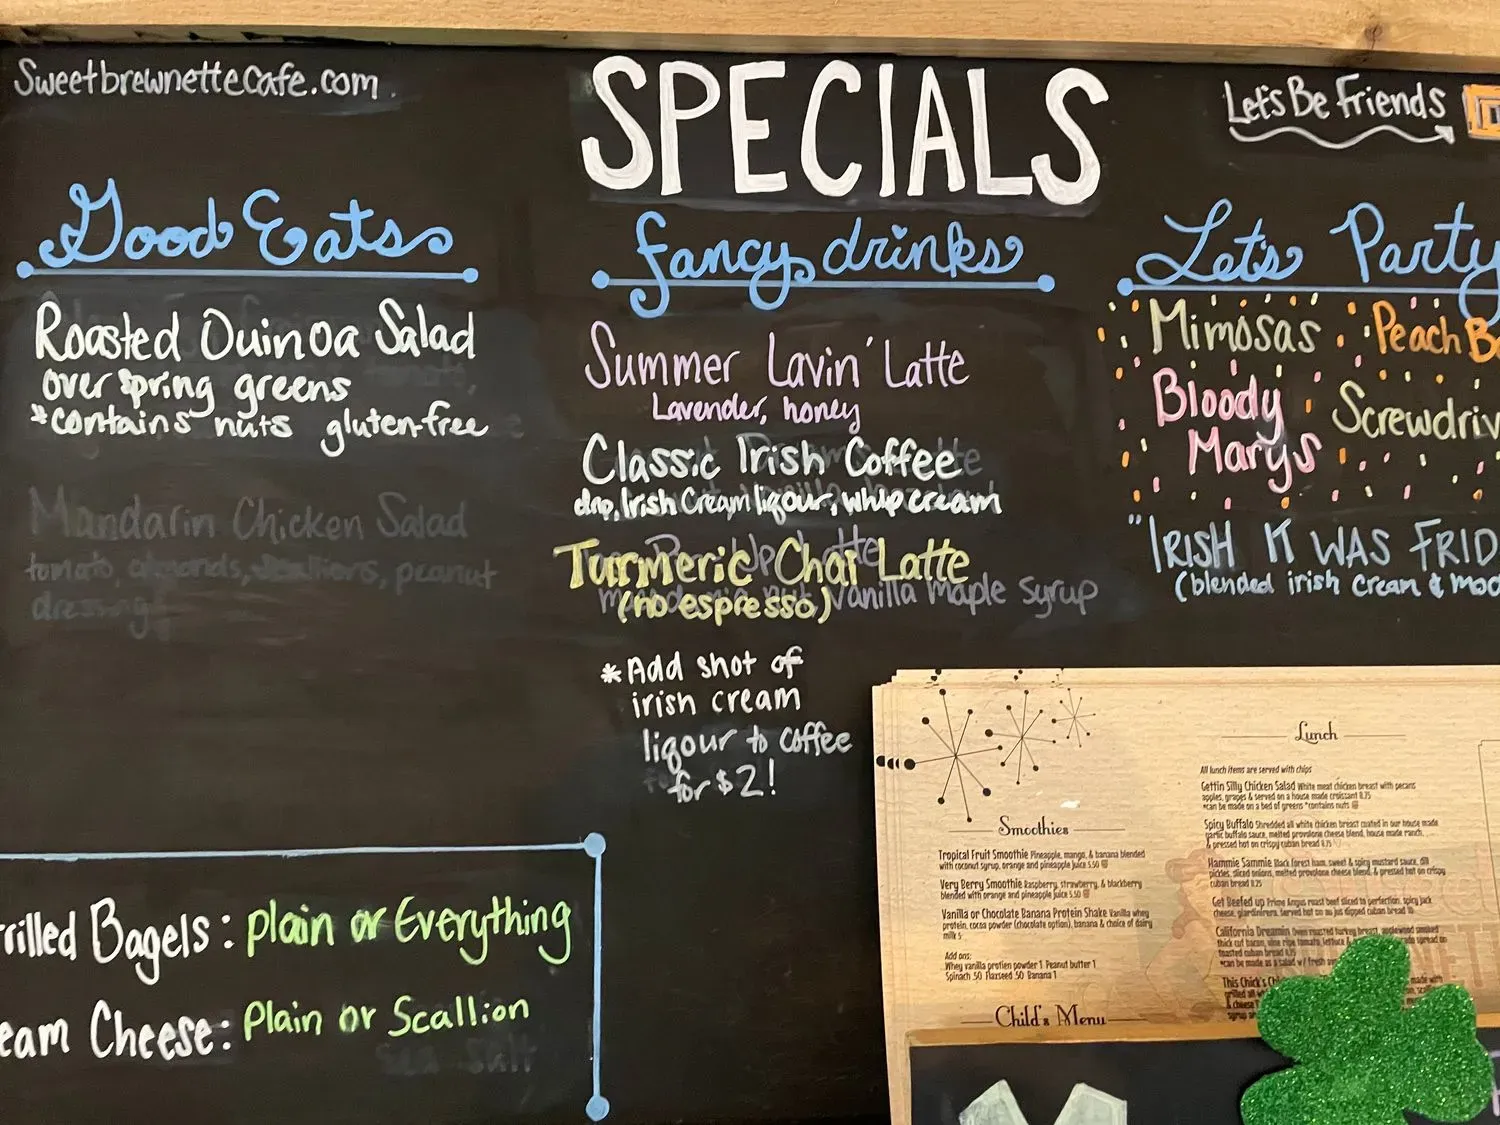 Sweetbrewnettecafe.com
SPECIALS
Let's Be Friends
Good Eats
Roasted Quinoa Salad
over spring greens
*contains nuts gluten-free
Mandarin Chicken Salad
tomato, almonds, scallions, peanut
dressing
Grilled Bagels: Plain or Everything
Cream Cheese: Plain or Scallion
fancy drinks
Summer Lavin' Latte
Lavender, honey
Classic Irish Coffee
drip, Irish Cream liqour, whip cream
Turmeric Chai Latte
(no espresso)
vanilla maple syrup
*Add shot of
irish cream
liqour to coffee
for $2!
Let's Party
Mimosas
Peach B
Bloody
Marys
Screwdriv
"IRISH IT WAS FRID
(blended irish cream & moc
Smoothies
Tropical Fruit Smoothie Pineapple, mango, & banana blended
with coconut syrup, orange and pineapple juice 5.50
Very Berry Smoothie Raspberry, strawberry, & blackberry
blended with orange and pineapple juice 5.50
Vanilla or Chocolate Banana Protein Shake Vanilla whey
protein, cocoa powder (chocolate option), banana & choice of dairy
milk 5
Add ons:
Whey vanilla protien powder 1 Peanut butter 1
Spinach .50 Flaxseed .50 Banana 1
Child's Menu
Lunch
All lunch items are served with chips
Gettin Silly Chicken Salad White meat chicken breast with pecans
apples, grapes & served on a house made croissant 8.75
*can be made on a bed of greens *contains nuts
Spicy Buffalo Shredded all white chicken breast coated in our house made
garlic buffalo sauce, melted provolone cheese blend, house made ranch,
& pressed hot on crispy cuban bread 8.75
Hammie Sammie Black forest ham, sweet & spicy mustard sauce, dill
pickles, sliced onions, melted provolone cheese blend, & pressed hot on crispy
cuban bread 8.25
Get Beefed up Prime Angus roast beef sliced to perfection, spicy jack
cheese, giardiniera. Served hot on au jus dipped cuban bread 10
California Dreamin Oven roasted turkey breast, applewood smoked
thick cut bacon, vine ripe tomato, lettuce & spread on
toasted cuban bread
*can be made as a salad w/ fresh
This Chick's made with
grilled
& cheese